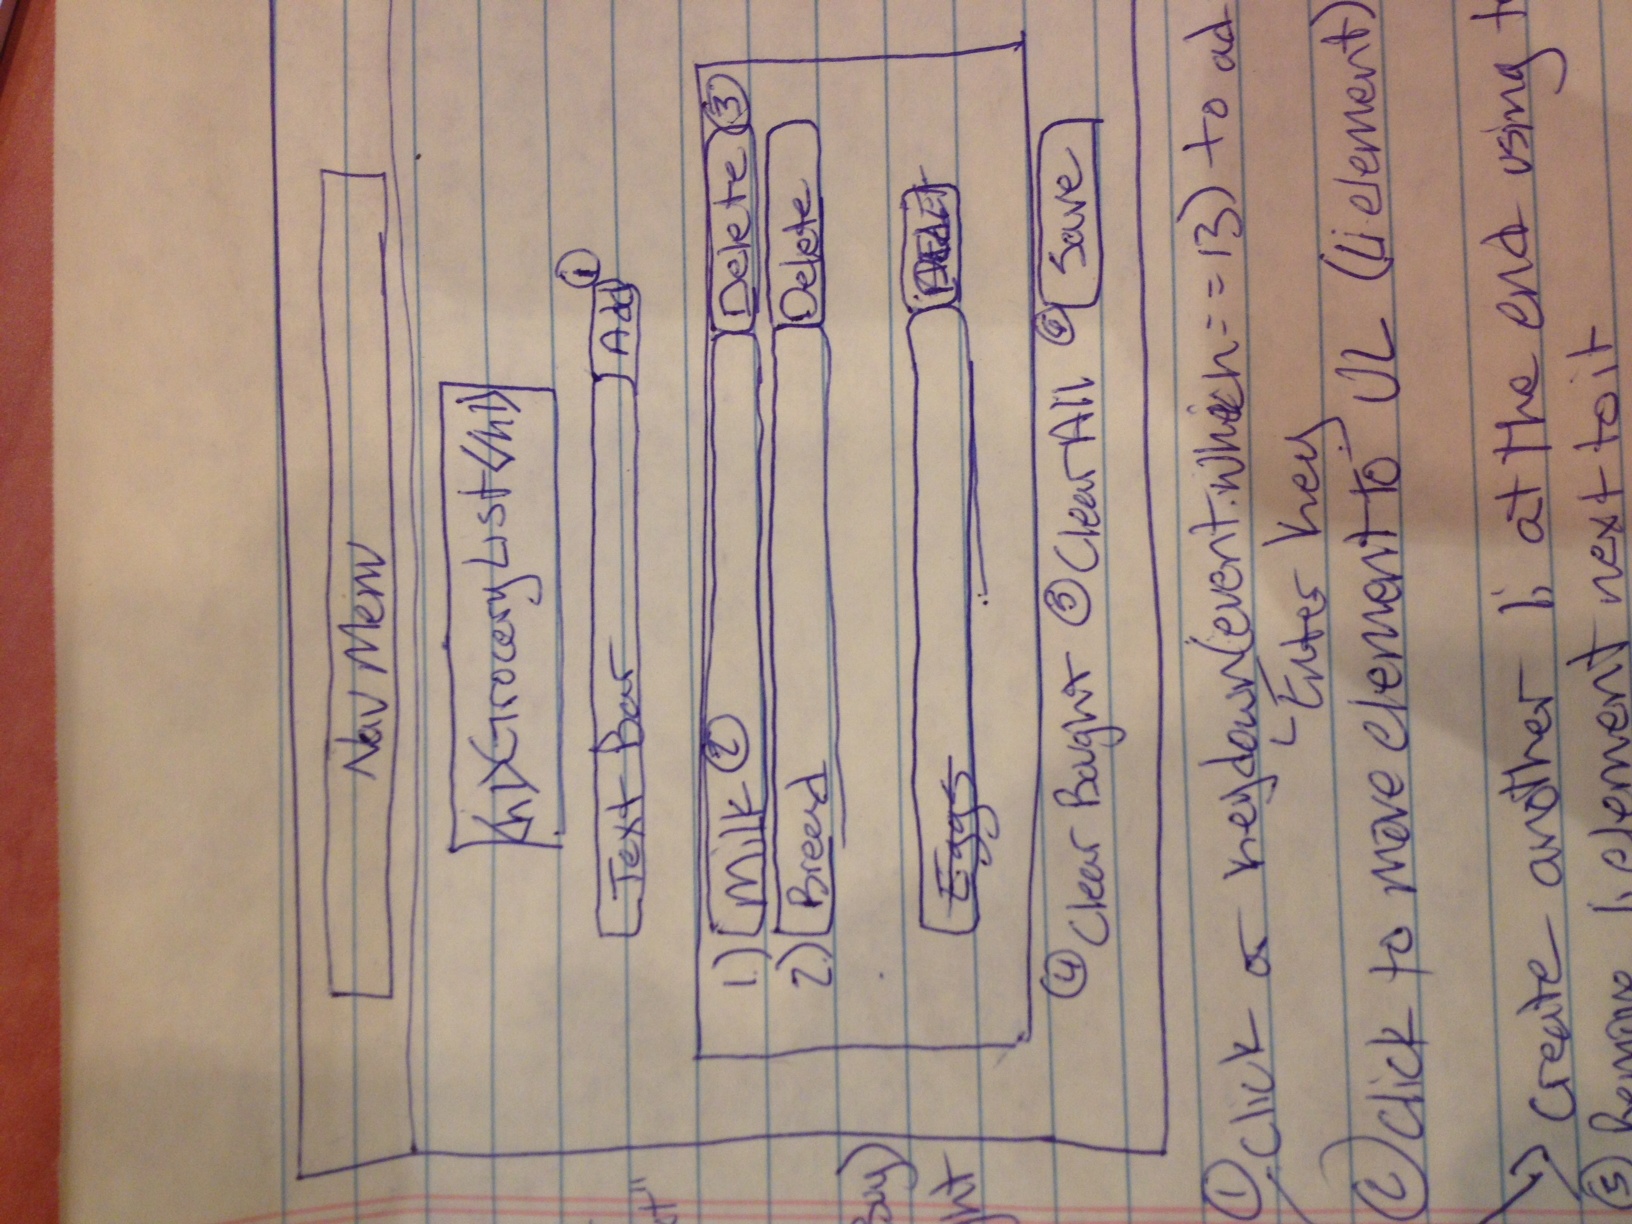 Nav Menu
<h1>Grocery List</h1>
Text Bar Add ①
1.) Milk ② Delete ③
2.) Bread Delete
Eggs
④ Clear Bought ⑤ Clear All ⑥ Save
① Click or keydown(event.which==13) to ad
Enter key
② Click to move element to UL (li element)
Create another li at the end using
③ Remove li element next to it
ct"
Buy)
ght